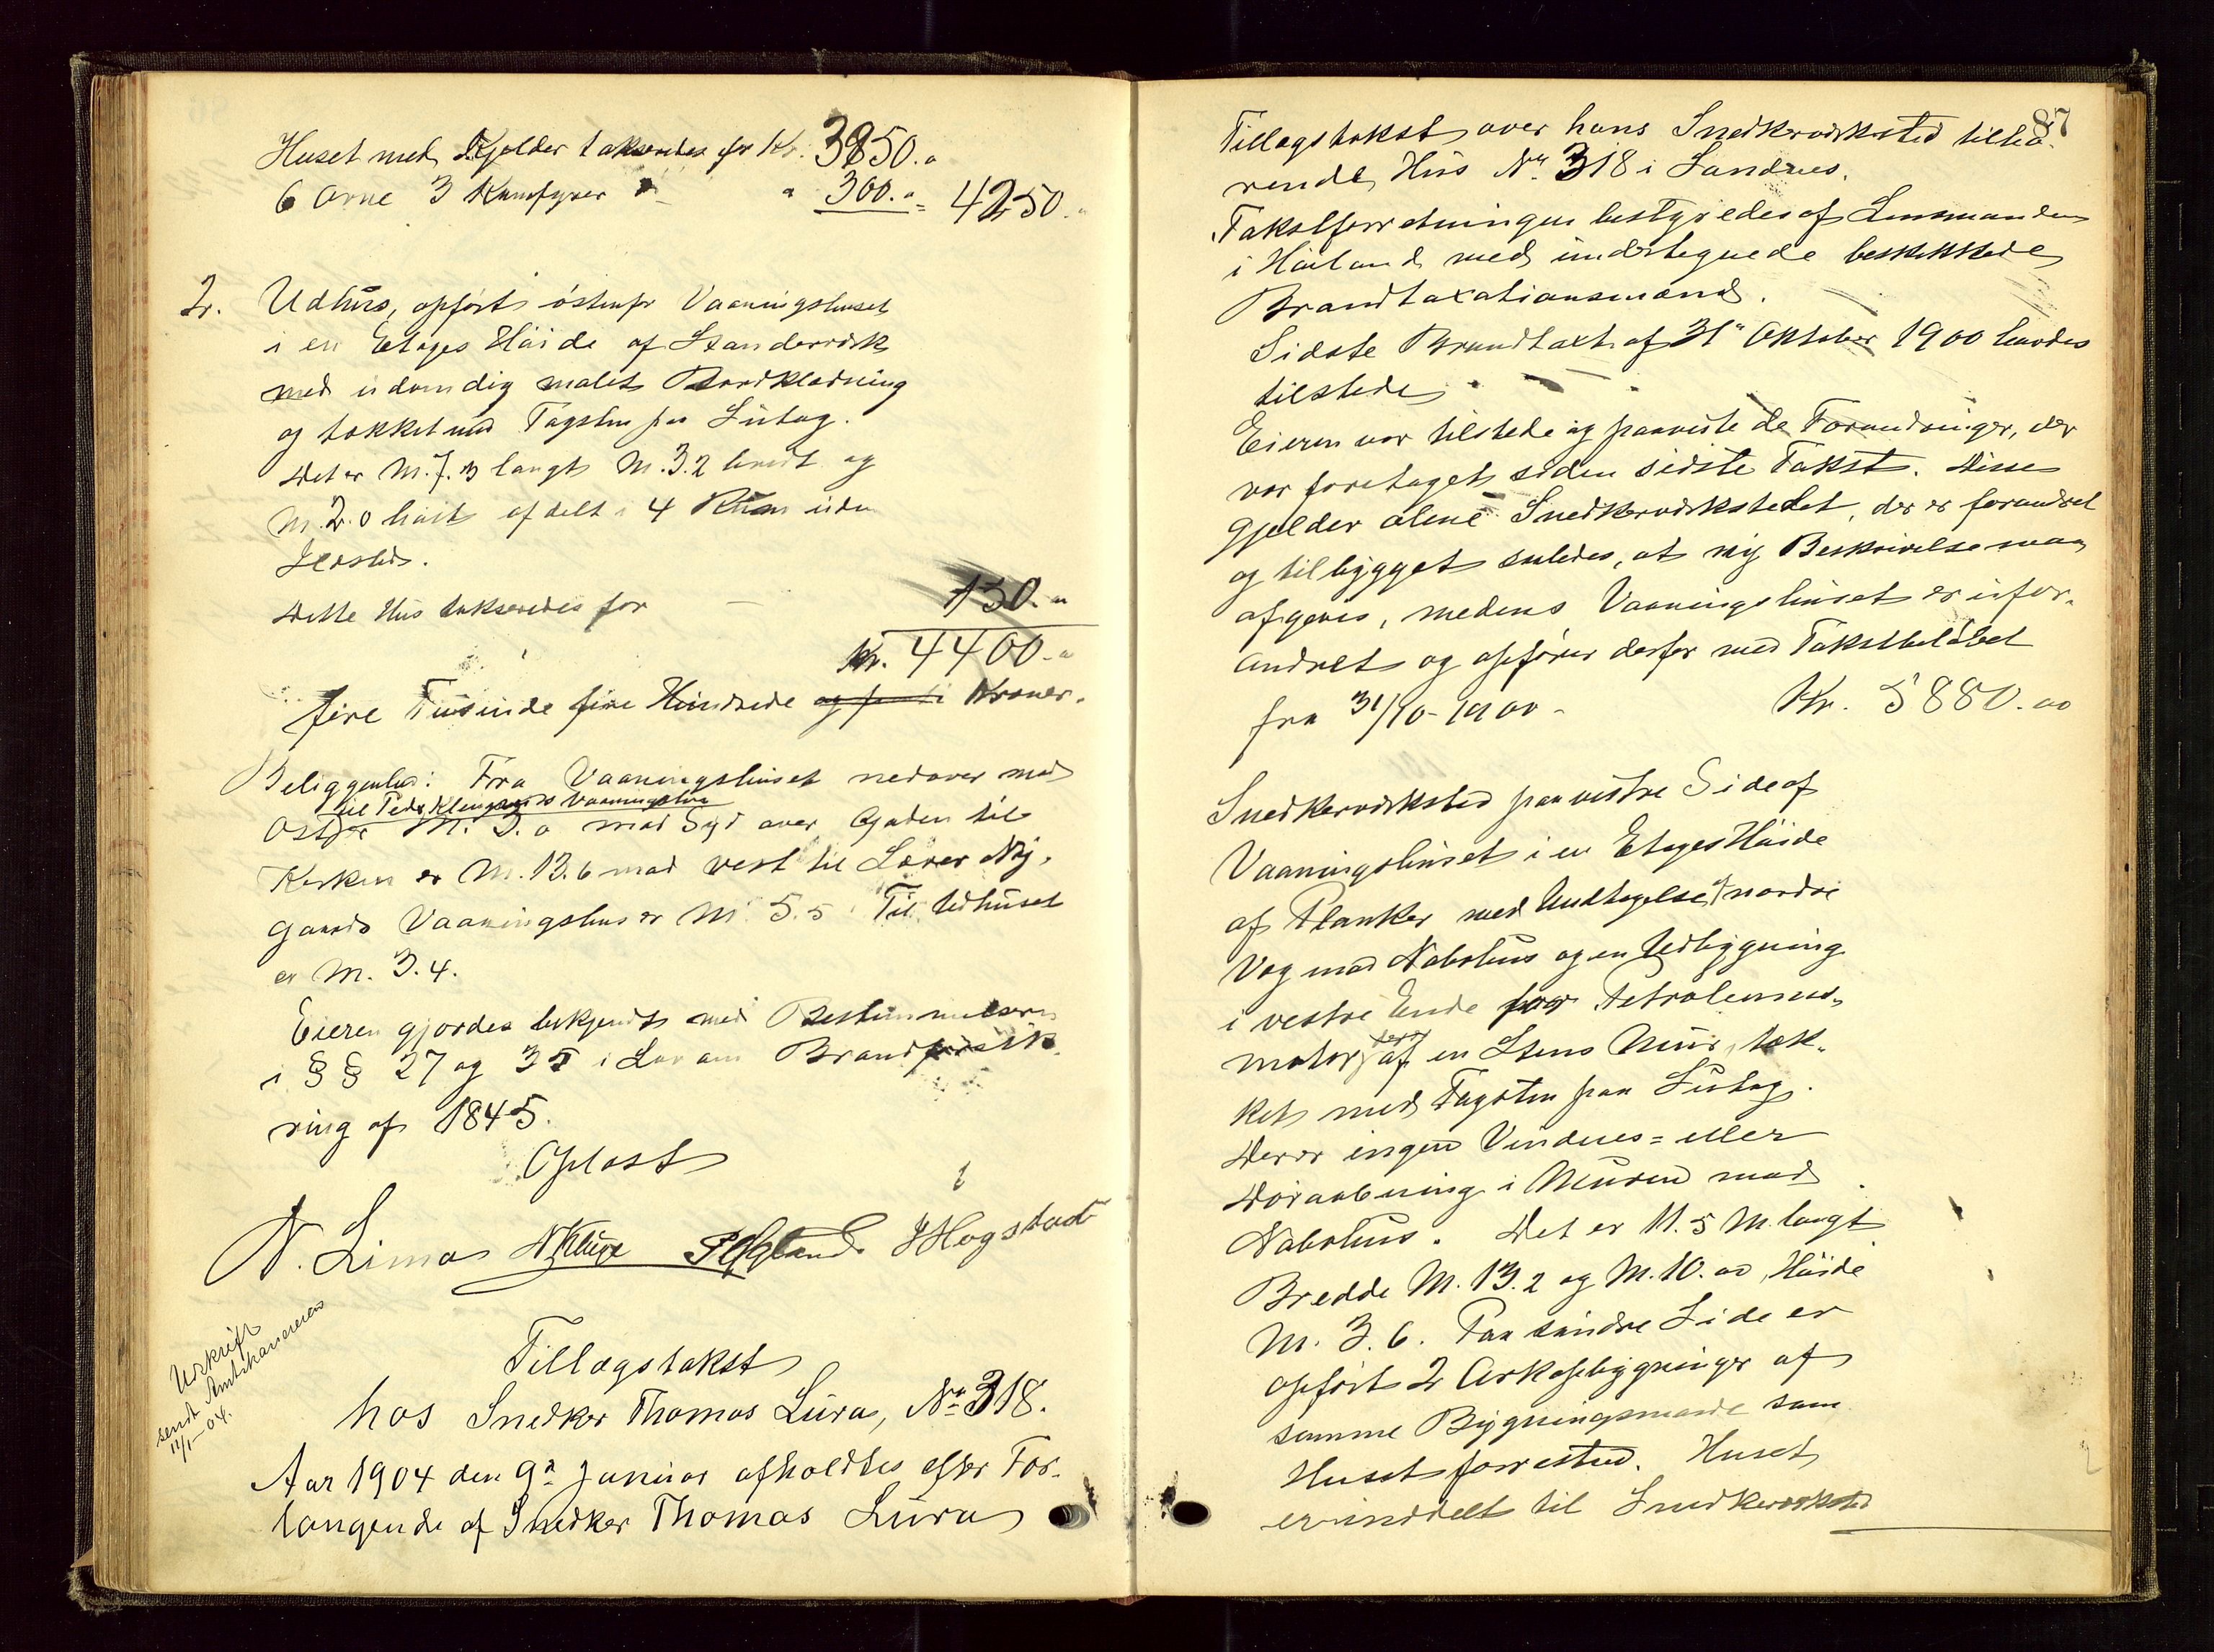 Huset med Kjelder takseredes for Kr. 3950.„
6 Ovne 3 Kumfyrer „ „ 300.„ = 4250.„
2. Udhus, opført østenfor Vaaningshuset
i en Etages Høide af Stenderværk
med udvendig malet Bordklædning
og tækket med Tagsten paa Sutag.
Det er M. 7.3 langt M. 3.2 bredt og
M. 2.0 høit afdelt i 4 Rum uden
Ildsted.
Dette Hus takseredes for 150.„
Kr. 4400.„
fire Tusinde fire Hundrede Kroner.
Beliggenhed: Fra Vaaningshuset nedover mod
til Peder Vaaningshus
Ost er M. 5.0 mod Syd over Gaden til
Kirken er M. 13.6 mod vest til Lærer Ny-
gaards Vaaningshus er M. 5.5 Til Udhuset
er M. 3.4.
Eieren gjordes bekjendt med Bestemmelserne
i §§ 27 og 35 i Lov om Brandforsik-
ring af 1845.
Oplæst
N. Lima N Kluge P Oglænd. J Hogstad
Udskrift
sendt Amtskasereren
11/1-04.
Tillægstakst
hos Snedker Thomas Lura, No 318.
Aar 1904 den 9de Januar afholdtes efter For-
langende af Snedker Thomas Lura
87
Tillægstakst over hans Snedkerværksted tilhø-
rende Hus No 318 i Sandnes.
Takstforretningen bestyredes af Lensmanden
i Høiland med undertegnede beskikkede
Brandtaxationsmænd.
Sidste Brandtaxt af 31te Oktober 1900 havdes
tilstede
Eieren var tilstede og paaviste de Forandringer, der
var foretaget siden sidste Takst. Disse
gjelder alene Snedkerværkstedet, der er forandret
og tilbygget saaledes, at ny Beskrivelse maa
afgives, medens Vaaningshuset er ufor-
andret og opføres derfor med Takstbeløbet
fra 31/10-1900 - Kr. 5880.00
Snedkerværksted paa vestre Side af
Vaaningshuset i en Etages Høide
af Planker med Undtagelse af nordre
Væg mod Nabohus og en Udbygning
i vestre Ende for Petroleums-
motor, der er af en Stens Mur, tæk-
ket med Tagsten paa Sutag.
Der er ingen Vindues= eller
Døraabning i Muren mod
Nabohus. Det er 11.5 M. langt
Bredde M. 13.2 og M. 10.00, Høide
M. 3.6. Paa søndre Side er
opført 2 Arkopbygninger af
samme Bygningsmaade som
Huset forøvrigt. Huset
er inddelt til Snedkerværksted